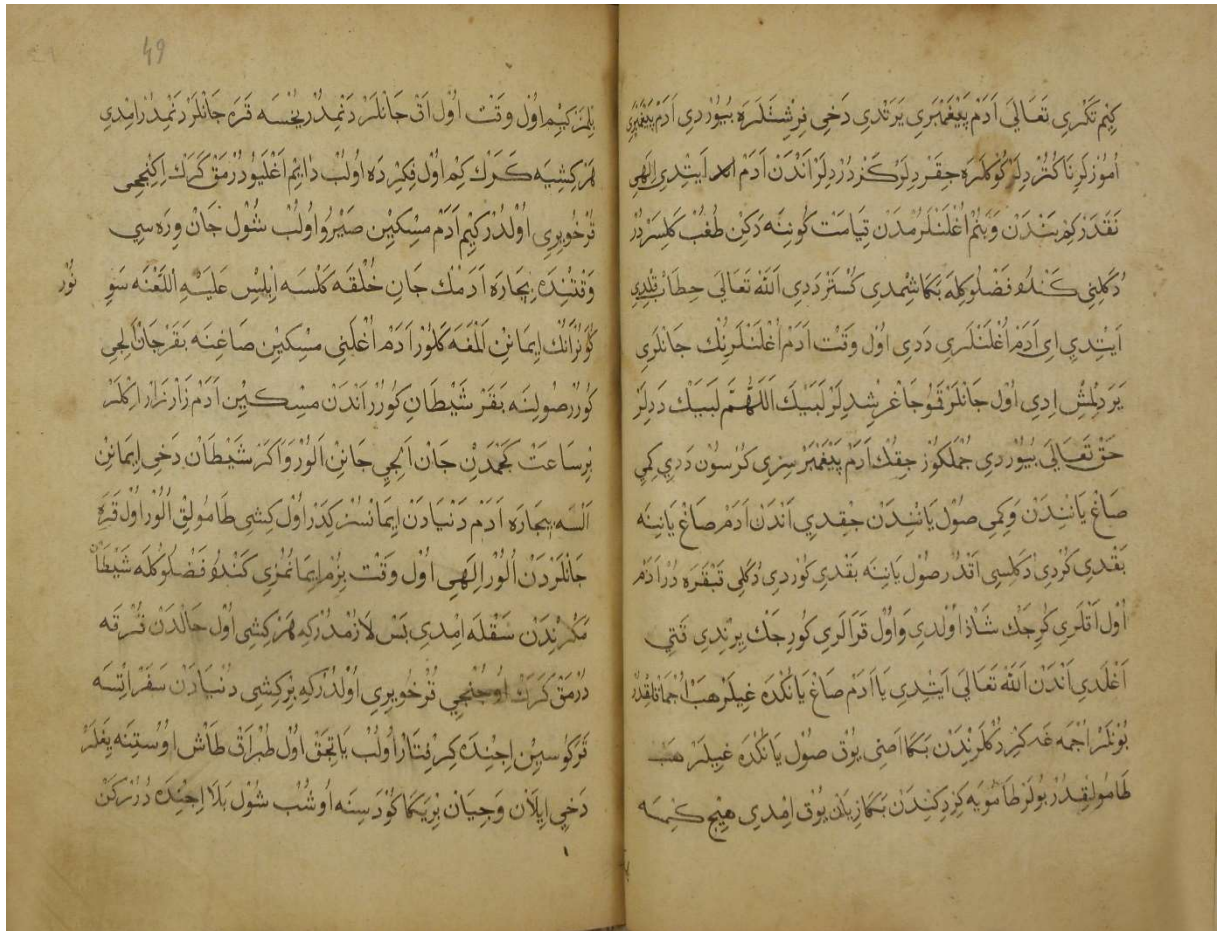 كِيم تَكْرِي تَعَالَى اَدَمْ پَيْغَمْبَرِي يَرَتْدِي دَخِي فِرِشْتَلَرَه بُيُوُرْدِي اَدَمْ پَيْغَمْبَرِي
اُمُوزْلَرِنَا كُتُرْدِلَرْ كُوكْلَرَه چِقَرْدِلَرْ كَزْدُرْدِلَرْ اَنْدَنْ اَدَمْ اَيِتْدِي اِلَهِي
نَقَدَرْ كِم بَنْدَنْ وَبَنُمْ اُغْلَنْلَرُمْدَنْ قِيَامَتْ كُونِنَه دَكِنْ طُغُبْ كَلِسَرْدُرْ
دُكَلِنِي كَنْدُو فَضْلُوكِلَه بَكَا شِمْدِي كُسْتَرْ دَدِي اَللّٰه تَعَالَى خِطَابْ قِلْدِي
اَيِتْدِي اَي اَدَمْ اُغْلَنْلَرِي دَدِي اُوُلْ وَقْتْ اَدَمْ اُغْلَنْلَرِنُكْ جَانْلَرِي
يَرَدِلْمِشْ اِدِي اُوُلْ جَانْلَرْ قَمُو جَاغْرِشْدِلَرْ لَبَيْكَ اَللّٰهُمَّ لَبَيْكَ دَدِلَرْ
حَقْ تَعَالَى بُيُوُرْدِي جُمْلَكُوزْ چِقُكْ اَدَمْ پَيْغَمْبَرْ سِزِي كُرْسُونْ دَدِي كِمِي
صَاغْ يَانِنْدَنْ وَكِمِي صُولْ يَانِنْدَنْ چِقْدِي اَنْدَنْ اَدَمْ صَاغْ يَانِنَه
بَقْدِي كُرْدِي دُكَلِسِي اَقْدُرْ صُولْ يَانِنَه بَقْدِي كُورْدِي دُكَلِي قَبْقَرَه دُرْ اَدَمْ
اُوُلْ اَقْلَرِي كُرِجَكْ شَاذْ اُولْدِي وَاُوُلْ قَرَالَرِي كُورِجَكْ يِرِنْدِي قَتِي
اَغْلَدِي اَنْدَنْ اَللّٰه تَعَالَى اَيِتْدِي يَا اَدَمْ صَاغْ يَانُكْدَه غِيلَرْ هَبْ اُجْمَاقْلِقْدُرْ
بُونْلَرْ اُجْمَغَه كِرْدِكْلَرِنْدَنْ بَكَا اَصِّي يُوقْ صُولْ يَانُكْدَه غِيلَرْ هَبْ
طَامُولِقْدُرْ بُولَرْ طَامُويَه كِرْدِكِنْدَنْ بَكَا زِيَانْ يُوقْ اِمْدِي هِيچْ كِمْسَه
49
بِلْمَزْ كِيم اُوُلْ وَقْتْ اُوُلْ اَقْ جَانْلَرْدَنْمِدُرْ يُخْسَه قَرَه جَانْلَرْدَنْمِدُرْ اِمْدِي
هَرْ كِشِيَه كَرَكْ كِمْ اُوُلْ فِكِرْدَه اُولُبْ دَايِمْ اَغْلَيُو دُرْمَقْ كَرَكْ اِكِنْجِي
قُرْخُو يِرِي اُولْدُرْ كِيمْ اَدَمْ مِسْكِينْ صَيْرُو اُولُبْ شُولْ جَانْ وِرَه سِي
وَقْتِنْدَه بِيچَارَه اَدَمُكْ جَانِ خُلْقَه كَلْسَه اِبْلِسْ عَلَيْهِ اللَّعْنَه سَوِ
نُورْ
كُونُرْ اَنُكْ اِيمَانِنْ اَلْمَغَه كَلُورْ اَدَمْ اُغْلَنِي مِسْكِينْ صَاغِنَه بَقَرْ جَانْ اَلِجِي
كُورُرْ صُولِنَه بَقَرْ شَيْطَانِ كُورُرْ اَنْدَنْ مِسْكِينْ اَدَمْ زَارْ زَارْ اِكْلَرْ
بِرْ سَاعَتْ كَچْمَدِنْ جَانْ اَلِجِي جَانِنْ اَلُورْ وَاَكَرْ شَيْطَانْ دَخِي اِيمَانِنْ
اَلْسَه بِيچَارَه اَدَمْ دُنْيَادَنْ اِيمَانْسُزْ كِدَرْ اُوُلْ كِشِي طَامُولِقْ اُلُورْ اُوُلْ قَرَه
جَانْلَرْدَنْ اُلُورْ اِلَهِي اُوُلْ وَقْتْ بِزُمْ اِيمَانُمُزِي كَنْدُو فَضْلُوكِلَه شَيْطَانْ
مَكْرِنْدَنْ سَقْلَه اِمْدِي بَسْ لَازِمْدُرْ كِه هَرْ كِشِي اُوُلْ حَالْدَنْ قُرْقَه
دُرْمَقْ كَرَكْ اُوچُنْجِي قُرْخُو يِرِي اُولْدُرْ كِه بِرْ كِشِي دُنْيَادَنْ سَفَرْ اِتْسَه
قَرَكُو سِينْ اِچِنْدَه كِرِفْتَارْ اُولُبْ يَاتِجَقْ اُوُلْ طُبْرَاقْ طَاشْ اُوسْتِنَه يِغَلَرْ
دَخِي اِيلَانْ وَچِيَانْ بِرْيَكَا كَوْدَسِنَه اُوشُبْ شُولْ بَلَا اِچِنْدَه دُرُرْكَنْ